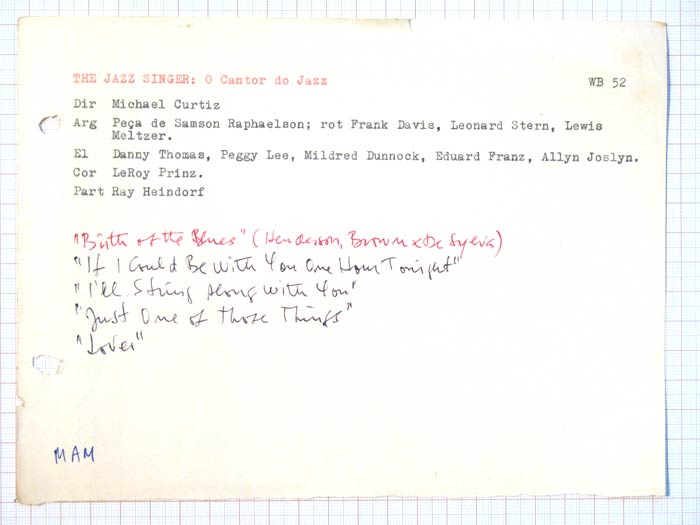 THE JAZZ SINGER: O Cantor do Jazz WB 52
Dir Michael Curtiz
Arg Peça de Samson Raphaelson; rot Frank Davis, Leonard Stern, Lewis
Meltzer.
El Danny Thomas, Peggy Lee, Mildred Dunnock, Eduard Franz, Allyn Joslyn.
Cor LeRoy Prinz.
Part Ray Heindorf
"Birth of the Blues" (Henderson, Brown x De Sylvia)
"If I Could Be With You One Hour Tonight"
"I'll String Along With You"
"Just One of Those Things"
"Lover"
MAM